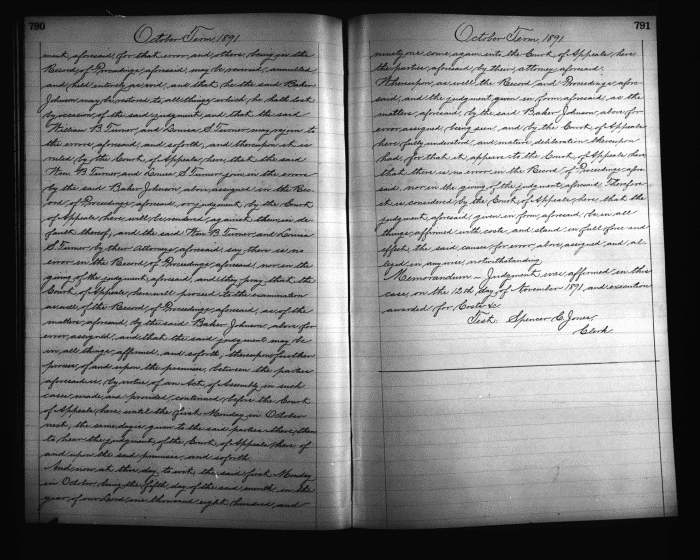 790
October Term, 1891
ment, aforesaid, for that error, and others, being in the
Record, of Proceedings, aforesaid, may be revised, annulled
and, held entirely, as void, and that, he, the said Baker
Johnson, may be, restored to, all things, which, he, hath, lost
by, occasion, of the said, judgment, and, that, the said
William B. Turner, and, Louisa S. Turner, may, rejoin to
the errors, aforesaid, and, so forth, and, thereupon, it, is
ruled, by, the Court, of Appeals, here, that, the said
Wm. B. Turner, and, Louisa S. Turner, join, in, the, errors
by, the said, Baker Johnson, above, assigned, in the Rec-
ord, of Proceedings, aforesaid, or, judgment, by, the Court
of Appeals, here, will, be, rendered, against, them, in, de-
fault, thereof, and, the said, Wm. B. Turner, and Louisa
S. Turner, by, their, Attorney, aforesaid, say, there, is, no
error, in the Record, of Proceedings, aforesaid, nor in the
giving, of the judgment, aforesaid, and, they, pray, that, the
Court, of Appeals, here, will, proceed, to the, examination
as, well, of the Record, of Proceedings, aforesaid, as, of the
matters, aforesaid, by, the said, Baker Johnson, above, for
error, assigned, and, that, the said, judgment, may, be
in, all, things, affirmed, and, so forth, whereupon, further
process, of, and, upon, the premises, between, the parties
aforesaid, is, by, virtue, of an, Act, of Assembly, in such
case, made, and, provided, continued, before, the Court
of Appeals, here, until, the first, Monday, in October
next, the, same, day, is, given, to, the said, parties, there, then
to hear, the, judgment, of the, Court, of Appeals, here, of
and, upon, the said, premises, and, so forth.
And, now, at, this, day, to wit, the said, first, Monday
in October, being, the, fifth, day, of the said, month, in, the
year, of our Lord, one, thousand, eight, hundred, and
791
October Term, 1891
ninety one, come, again, into, the Court, of Appeals, here
the parties, aforesaid, by, their, attorney, aforesaid.
Whereupon, as, well, the Record, and Proceedings, afore-
said, and, the judgment, given, in form, aforesaid, as, the
matters, aforesaid, by, the said, Baker Johnson, above, for
error, assigned, being, seen, and, by, the Court, of Appeals
here, fully, understood, and, mature, deliberation, thereupon
had, for, that, it, appears, to the, Court, of Appeals, here
that, there, is, no, error, in the Record, of Proceedings, afore-
said, nor, in the giving, of the judgment, aforesaid. Therefore
it, is, considered, by, the Court, of Appeals, here, that, the
judgment, aforesaid, given, in, form, aforesaid, be, in, all
things, affirmed, with, costs, and, stand, in, full, force, and
effect, the said, causes, for, error, above, assigned, and, al-
leged, in, any, wise, notwithstanding.
Memorandum - Judgment, was, affirmed, in this
case, on the 12th day, of November 1891, and execution
awarded, for, Costs &c
Test: Spencer C. Jones,
Clerk